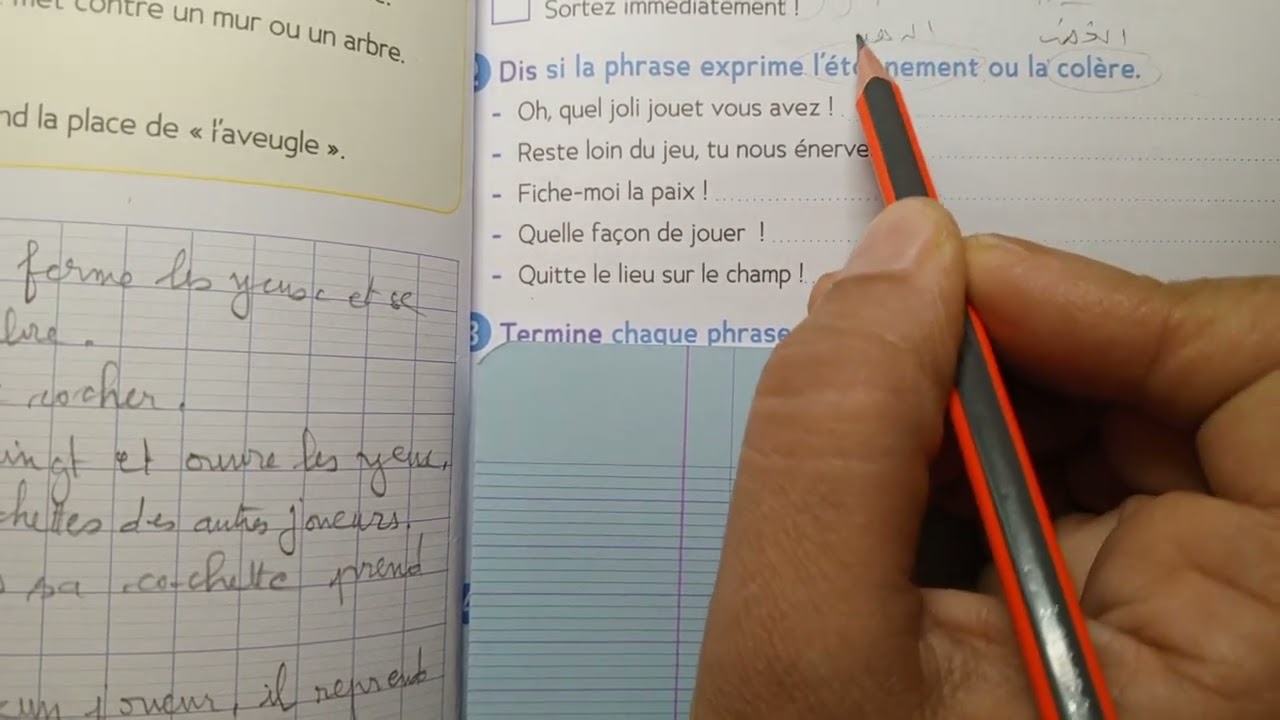 met contre un mur ou un arbre.
nd la place de « l'aveugle ».
ferme les yeux et se
cocher.
ingt et ouvre les yeux,
chettes des autres joueurs.
sa cachette prend
un joueur, il reprend
Sortez immédiatement !
Dis si la phrase exprime l'ét nement ou la colère.
- Oh, quel joli jouet vous avez !
- Reste loin du jeu, tu nous énerve
- Fiche-moi la paix !
- Quelle façon de jouer !
- Quitte le lieu sur le champ !
3 Termine chaque phrase